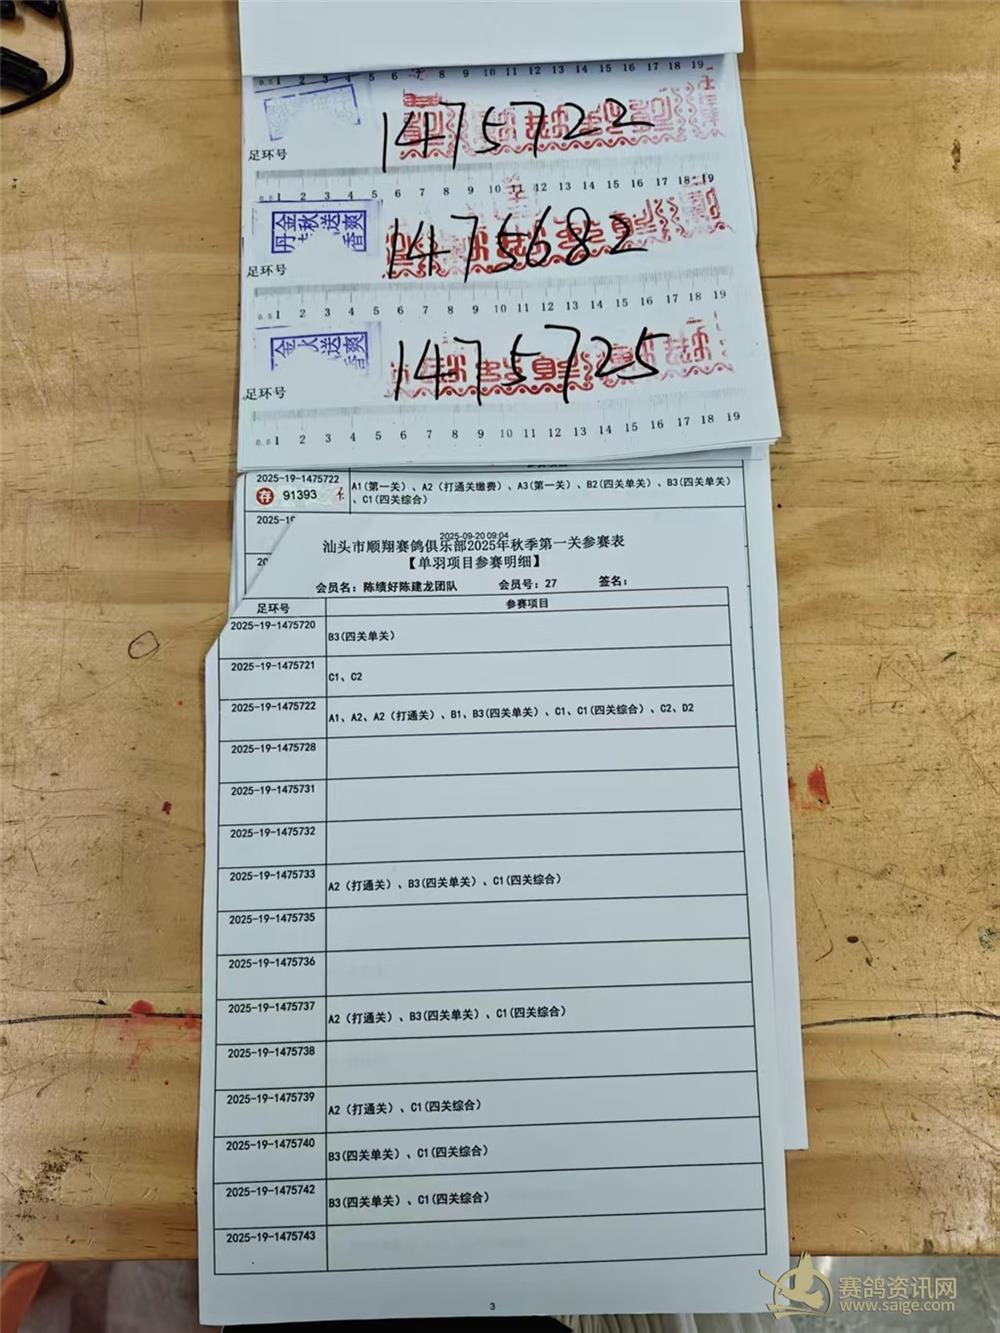 0.5 1 2 3 4 5 6 7 8 9 10 11 12 13 14 15 16 17 18 19
足环号
1475722
0.5 1 2 3 4 5 6 7 8 9 10 11 12 13 14 15 16 17 18 19
丹金秋送
香爽
足环号
1475682
0.5 1 2 3 4 5 6 7 8 9 10 11 12 13 14 15 16 17 18 19
金 送
香爽
足环号
1475725
0.5 1 2 3 4 5 6 7 8 9 10 11 12 13 14 15 16 17 18 19
2025-19-1475722
存 91393
A1(第一关)、A2（打通关缴费）、A3(第一关)、B2(四关单关)、B3(四关单关)
、C1(四关综合)
2025-19
2025-09-20 09:04
汕头市顺翔赛鸽俱乐部2025年秋季第一关参赛表
【单羽项目参赛明细】
会员名：陈绩好陈建龙团队 会员号：27 签名：
足环号 参赛项目
2025-19-1475720 B3(四关单关)
2025-19-1475721 C1、C2
2025-19-1475722 A1、A2、A2（打通关）、B1、B3(四关单关)、C1、C1(四关综合)、C2、D2
2025-19-1475728
2025-19-1475731
2025-19-1475732
2025-19-1475733 A2（打通关）、B3(四关单关)、C1(四关综合)
2025-19-1475735
2025-19-1475736
2025-19-1475737 A2（打通关）、B3(四关单关)、C1(四关综合)
2025-19-1475738
2025-19-1475739 A2（打通关）、C1(四关综合)
2025-19-1475740 B3(四关单关)、C1(四关综合)
2025-19-1475742 B3(四关单关)、C1(四关综合)
2025-19-1475743
3
赛鸽资讯网
www.saige.com